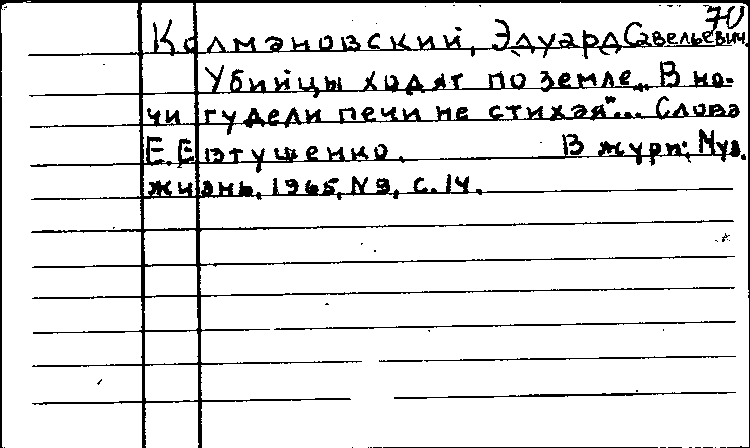 70
Колмановский, Эдуард Савельевич.
Убийцы ходят по земле „В но-
чи гудели печи не стихая"... Слова
Е. Евтушенко. В журн.: Муз.
жизнь, 1965, N 9, с. 14.